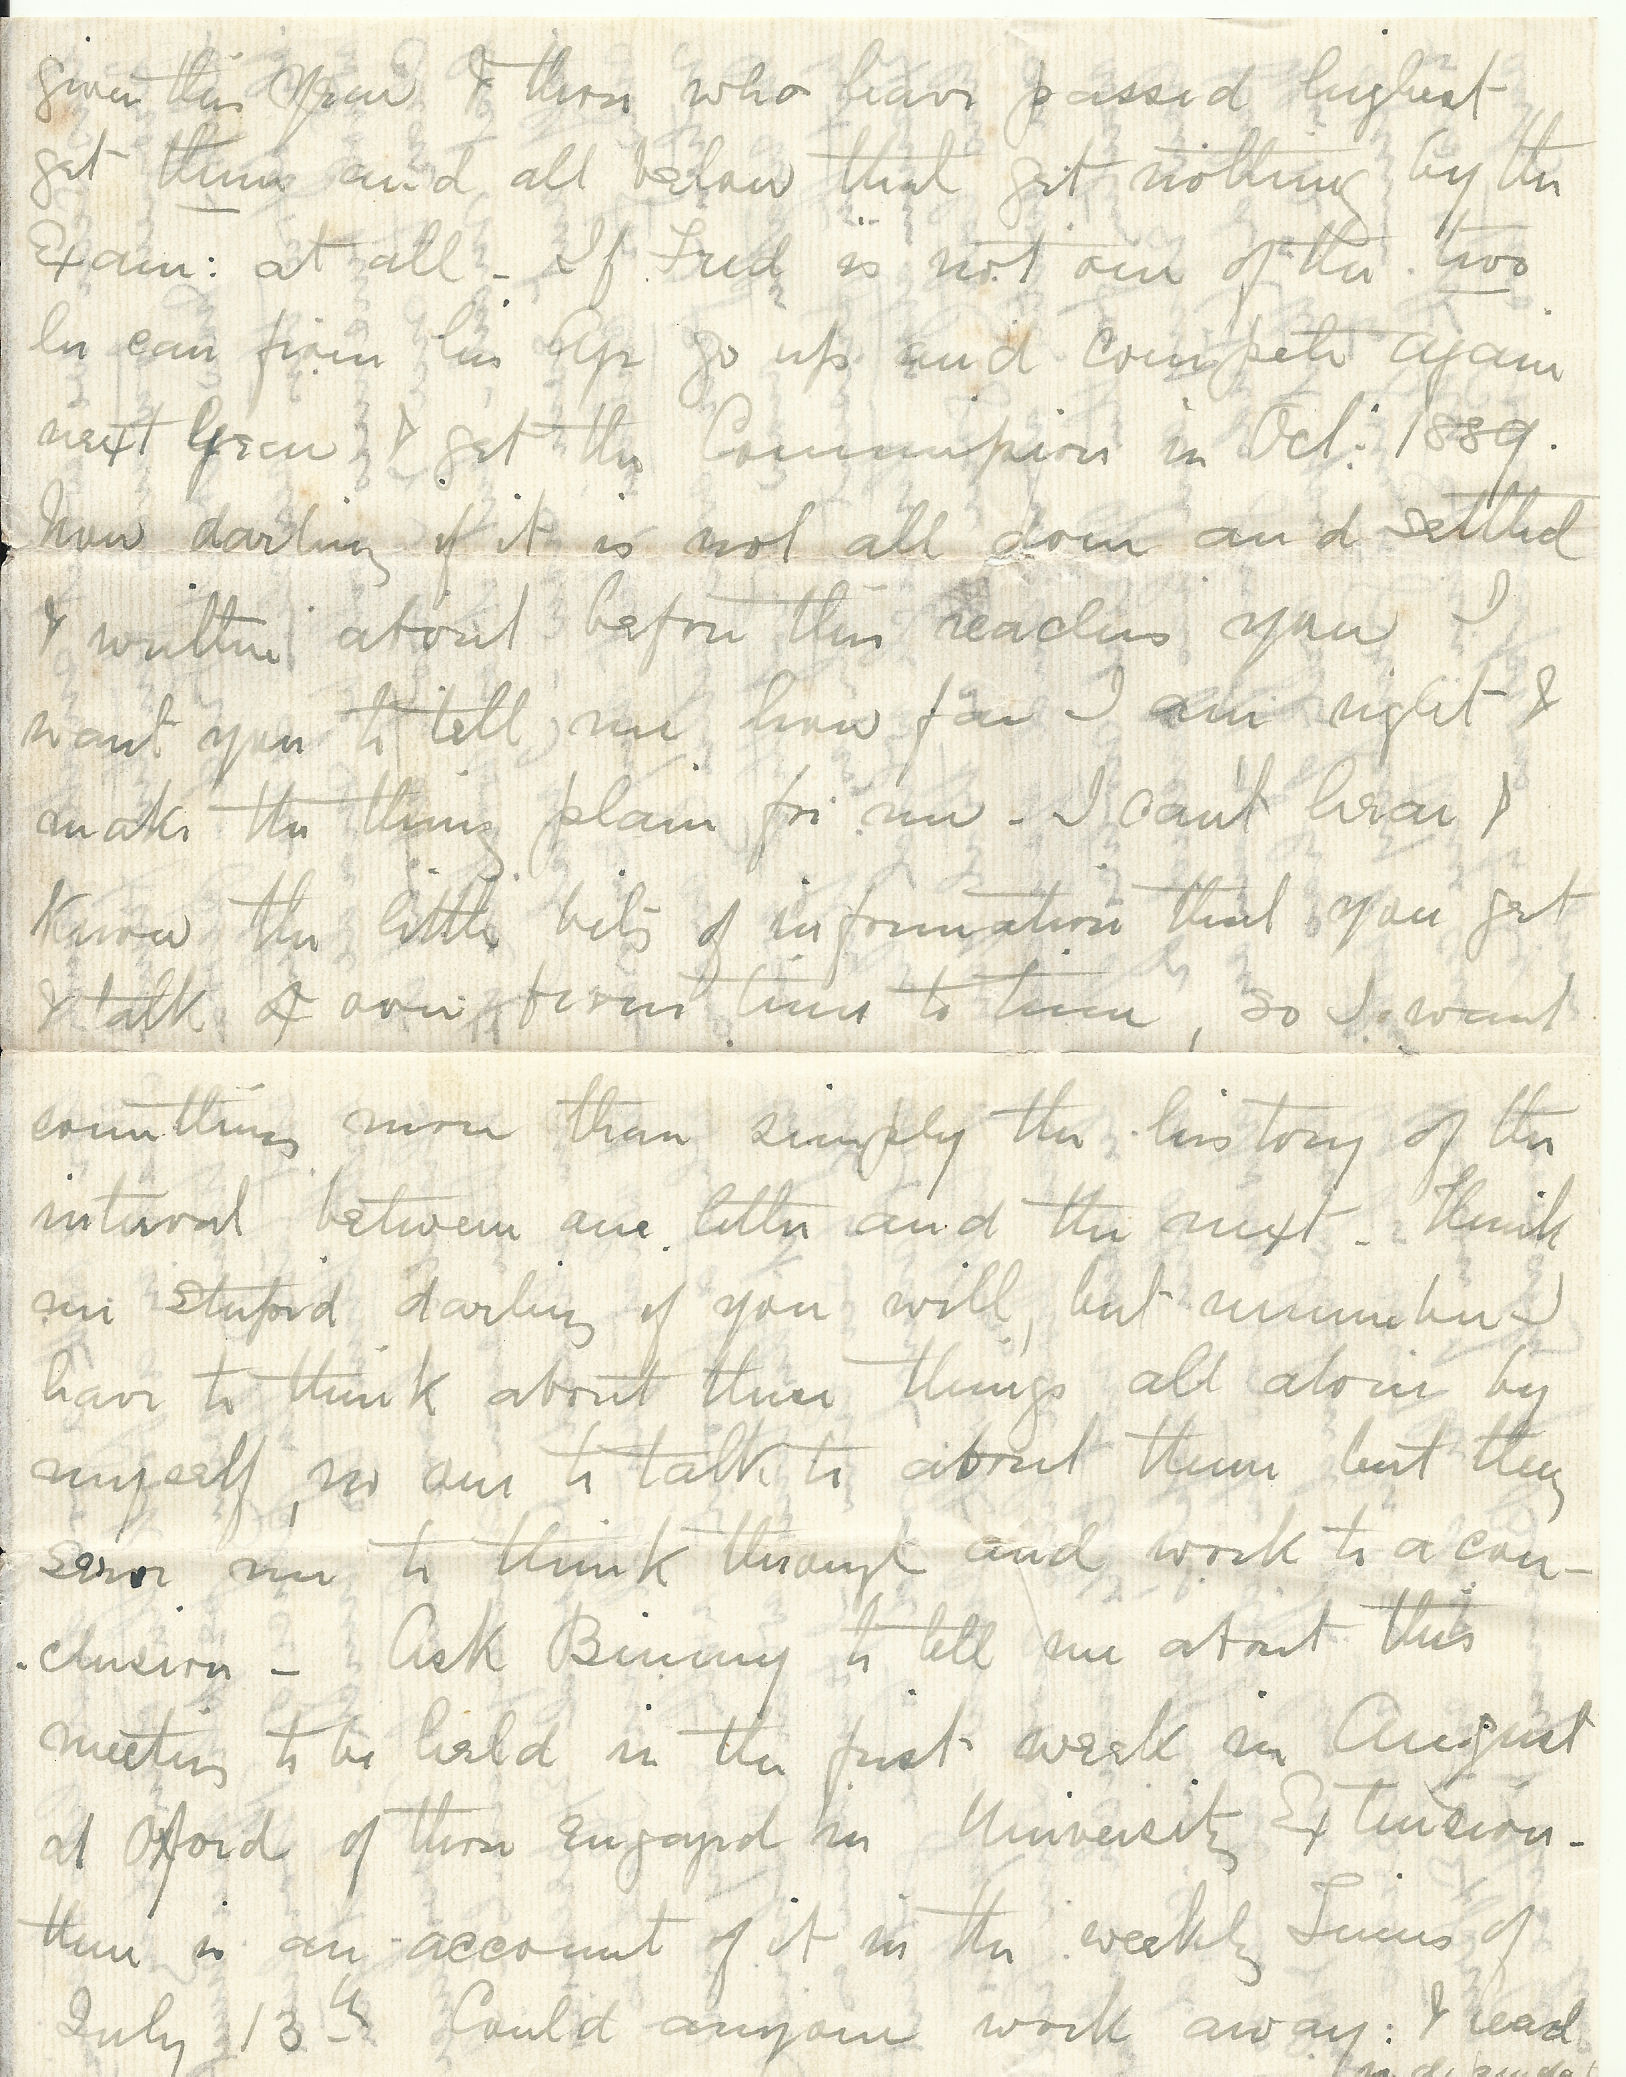 given this year & those who have passed highest
get them and all below that get nothing by the
Exam: at all - If Fred is not one of the two
he can from his age go up and compete again
next year & get the Commission in Oct: 1889.
Now darling if it is not all done and settled
& written about before this reaches you I
want you to tell me how far I am right &
make the thing plain for me - I can't hear &
know the little bits of information that you get
& talk over from time to time, so I want
something more than simply the history of the
interval between one letter and the next - Think
me stupid darling if you will, but remember I
have to think about these things all alone by
myself, no one to talk to about them but they
serve me to think through and work to a con-
-clusion - Ask Binny to tell me about this
meeting to be held in the first week in August
at Oxford of those engaged in University Extension -
there is an account of it in the weekly Times of
July 13th Could anyone work away: & read